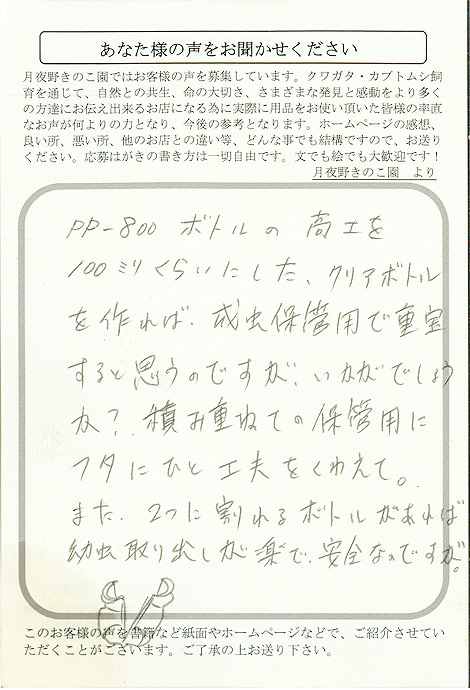 あなた様の声をお聞かせください
月夜野きのこ園ではお客様の声を募集しています。クワガタ・カブトムシ飼
育を通じて、自然との共生、命の大切さ、さまざまな発見と感動をより多く
の方達にお伝え出来るお店になる為に実際に用品をお使い頂いた皆様の率直
なお声が何よりの力となり、今後の参考となります。ホームページの感想、
良い所、悪い所、他のお店との違い等、どんな事でも結構ですので、お送り
ください。応募はがきの書き方は一切自由です。文でも絵でも大歓迎です！
月夜野きのこ園　より
PP-800 ボトルの 高エを
100ミリくらいにした、クリアボトル
を作れば、成虫保管用で重宝
すると思うのですが、いかがでしょう
か？ 積み重ねての保管用に
フタにひと工夫をくわえて。
また、2つに割れるボトルがあれば
幼虫取り出しが楽で、安全なのですが。
このお客様の声を書籍など紙面やホームページなどで、ご紹介させてい
ただくことがございます。ご了承の上お送り下さい。